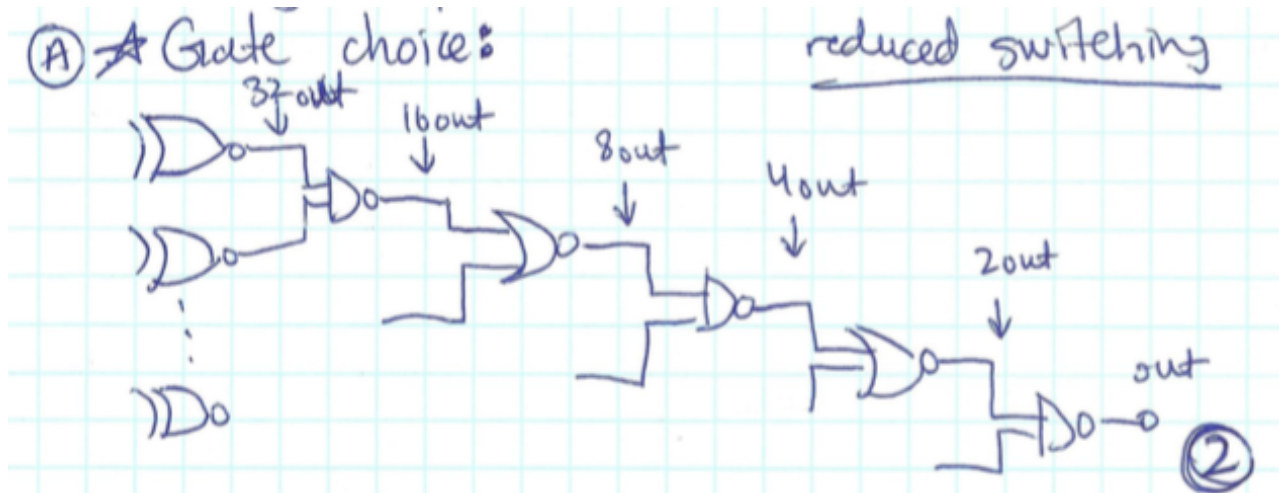 A Gate choice: reduced switching
32 out
16 out
8 out
4 out
2 out
out
2